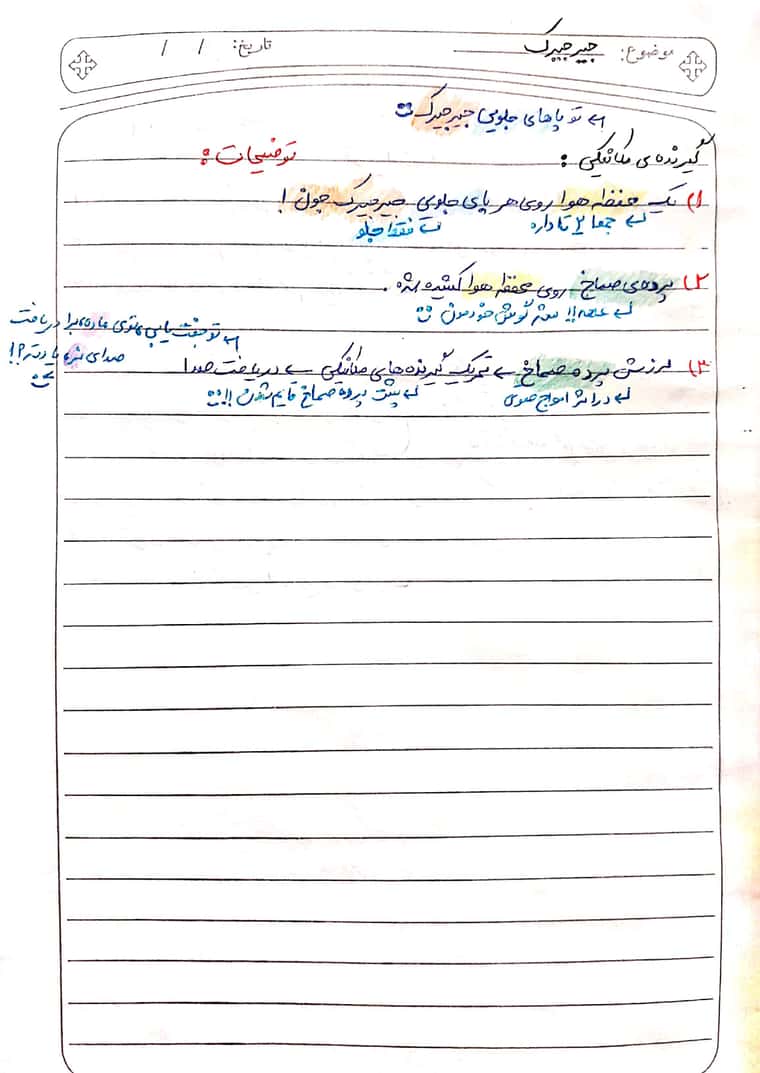 موضوع: جیرجیرک
تاریخ: / /
تو پاهای جلویی جیرجیرک
گیرنده ی مکانیکی :
توضیحات :
۱) یک محفظه هوا روی هر پای جلویی جیرجیرک جون !
جمعا ۲ تا داره
فقط جلو
۲) پرده ی صماخ روی محفظه هوا کشیده شده .
عه!! مثه گوش خودمون
تو جفت یابی و توی ماده برا دریافت
صدای نره یادته؟!
۳) لرزش پرده صماخ ← تحریک گیرنده های مکانیکی ← دریافت صدا
در اثر امواج صوتی
پشت پرده صماخ قایم شدن !!